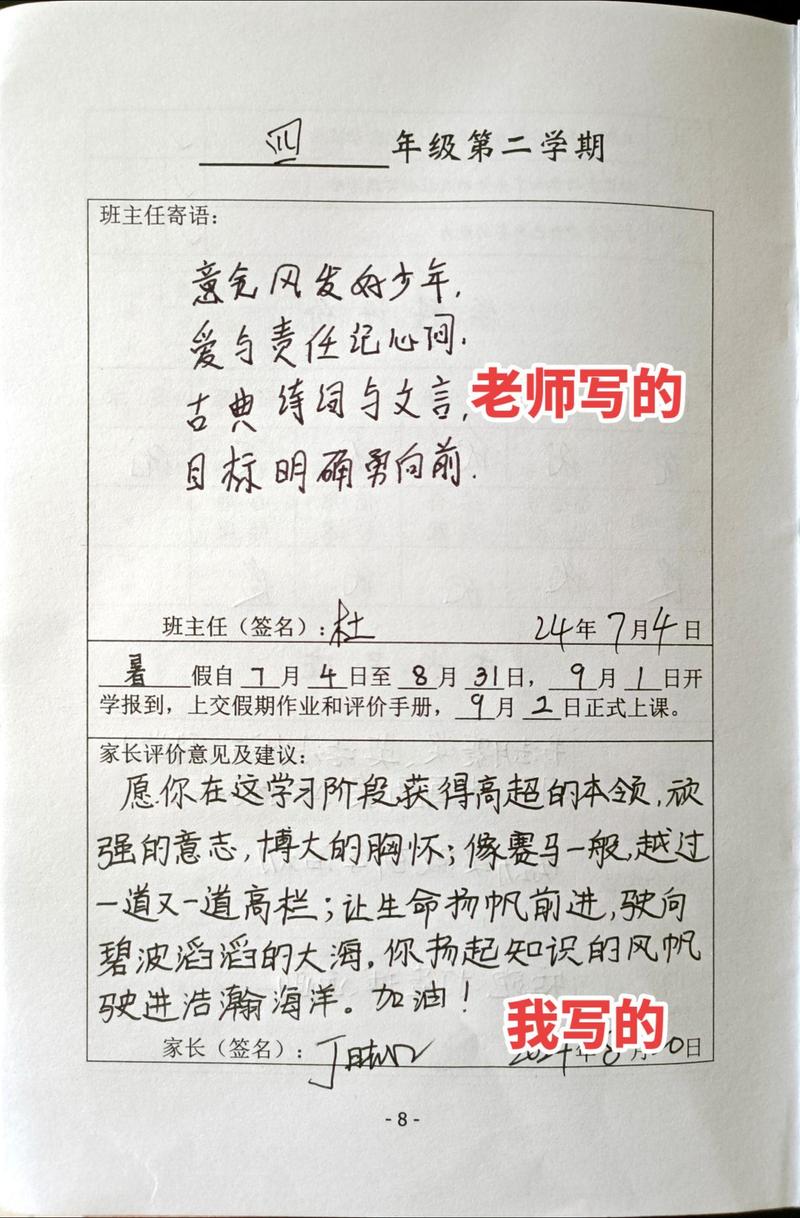 四年级第二学期
班主任寄语：
意气风发好少年，
爱与责任记心间.
古典诗词与文言，
老师写的
目标明确勇向前.
班主任（签名）：杜 24年7月4日
暑假自7月4日至8月31日，9月1日开
学报到，上交假期作业和评价手册，9月2日正式上课。
家长评价意见及建议：
愿你在这学习阶段获得高超的本领，顽
强的意志，博大的胸怀；像赛马一般，越过
一道又一道高栏；让生命扬帆前进，驶向
碧波滔滔的大海，你扬起知识的风帆
驶进浩瀚海洋。加油！
我写的
家长（签名）：丁 2024年8月 0日
- 8 -